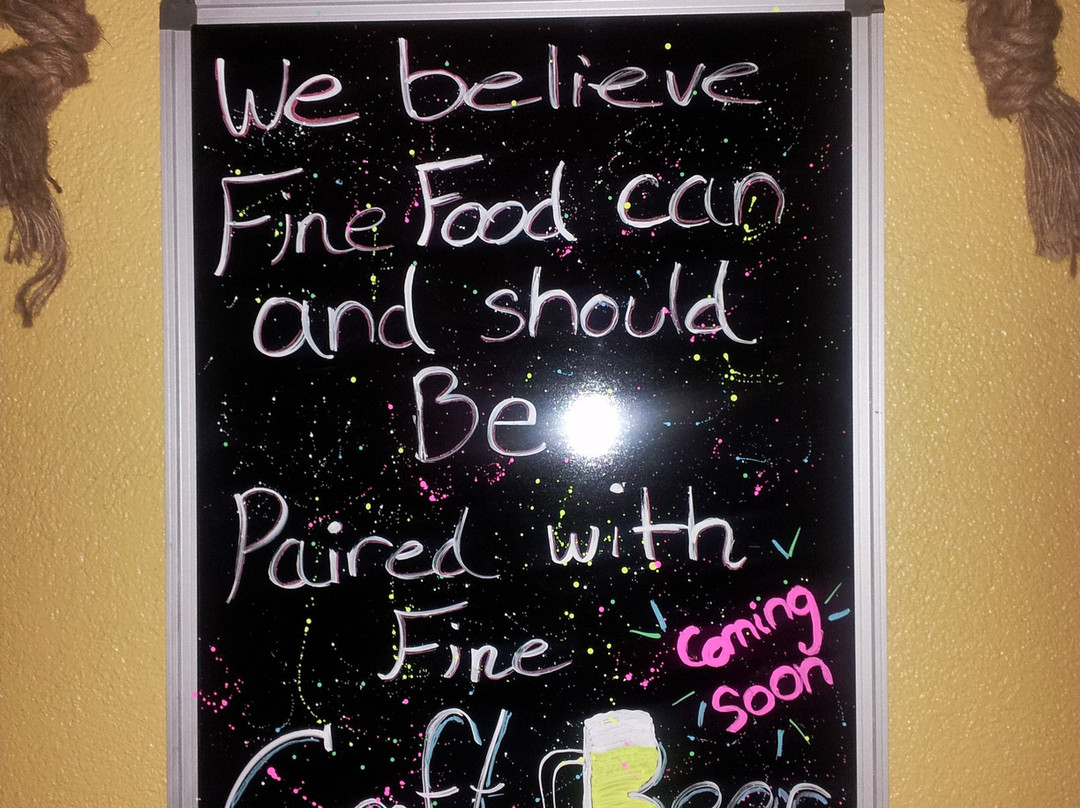 We believe
Fine Food can
and should
Be
Paired with
Fine
Coming
Soon
Craft Beer